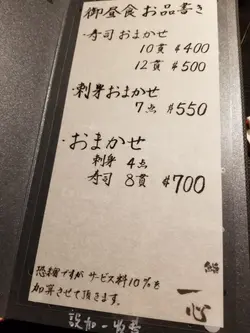 御昼食お品書き
・寿司おまかせ
10貫 $400
12貫 $500
・刺身おまかせ
7点 $550
・おまかせ
刺身 4点
寿司 8貫 $700
恐縮ですがサービス料10%を
加算させて頂きます。
一心
設加一